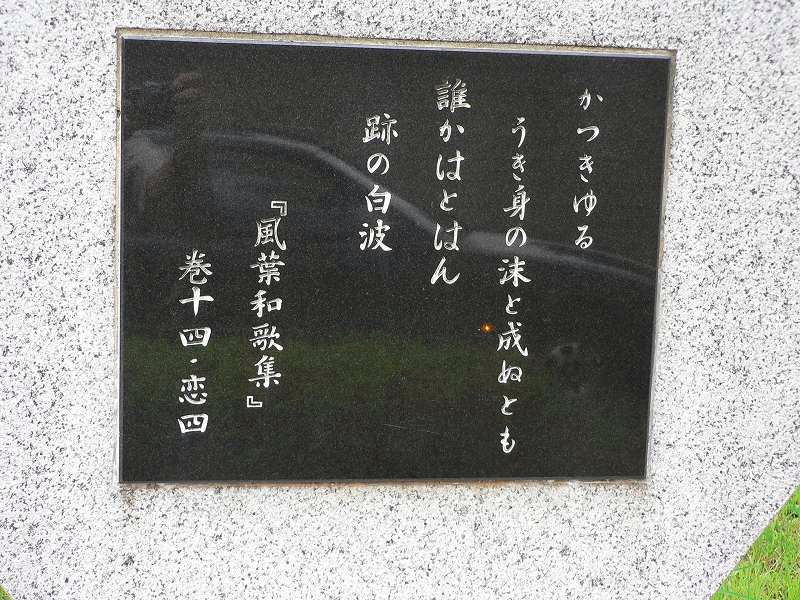 かつきゆる
うき身の沫と成ぬとも
誰かはとはん
跡の白波
『風葉和歌集』
巻十四・恋四